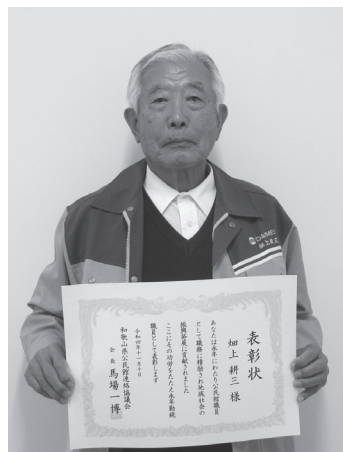 表彰状
畑上耕三様
あなたは永年にわたり公民館職員
として職務に精励され地域社会の
振興発展に貢献されました
ここにその功労をたたえ永年勤続
職員として表彰します
令和四年十一月十日
和歌山県公民館連絡協議会
会長 馬場一博